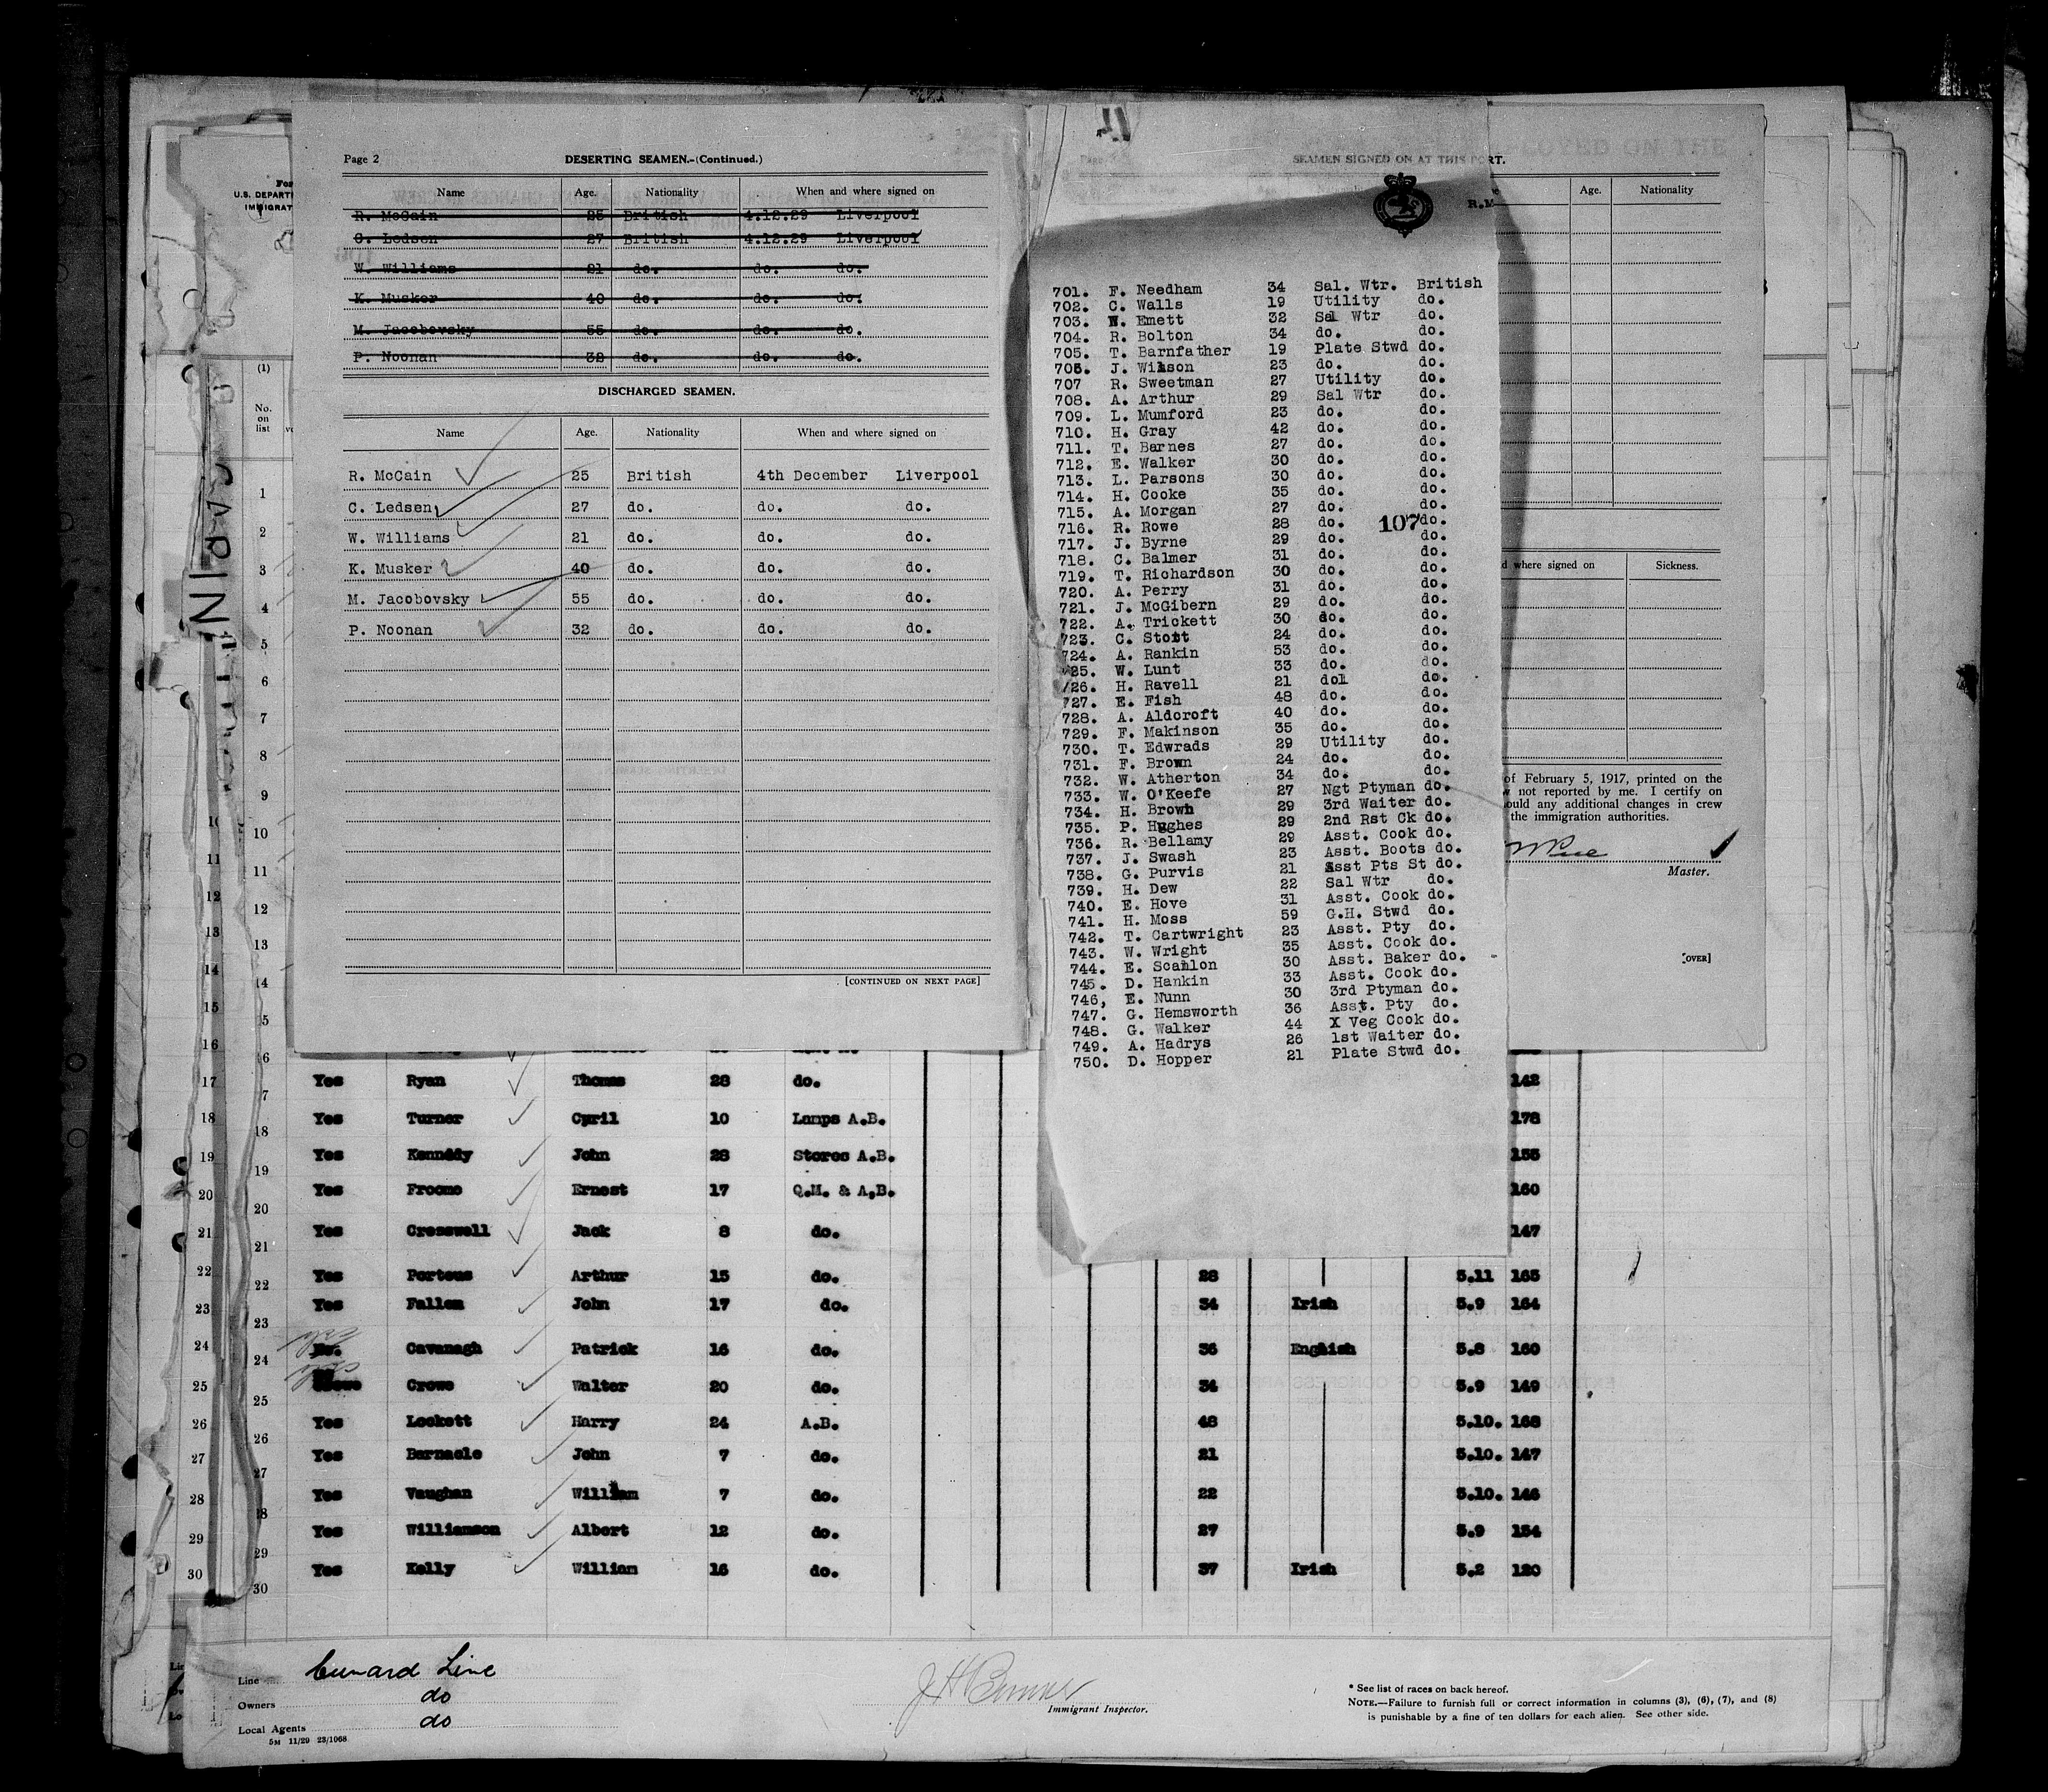 Page 2
DESERTING SEAMEN.-(Continued.)
Name Age. Nationality When and where signed on
R. McCain 25 British 4.12.29 Liverpool
C. Ledsen 27 British 4.12.29 Liverpool
W. Williams 21 do. do. do.
K. Musker 40 do. do. do.
M. Jacobovsky 55 do. do. do.
P. Noonan 32 do. do. do.
DISCHARGED SEAMEN.
Name Age. Nationality When and where signed on
R. McCain 25 British 4th December Liverpool
C. Ledsen 27 do. do. do.
W. Williams 21 do. do. do.
K. Musker 40 do. do. do.
M. Jacobovsky 55 do. do. do.
P. Noonan 32 do. do. do.
[CONTINUED ON NEXT PAGE]
SEAMEN SIGNED ON AT THIS PORT.
Age. Nationality
R.M
701. F. Needham 34 Sal. Wtr. British
702. C. Walls 19 Utility do.
703. W. Emett 32 Sal Wtr do.
704. R. Bolton 34 do. do.
705. T. Barnfather 19 Plate Stwd do.
706. J. Wilson 23 do. do.
707 R. Sweetman 27 Utility do.
708. A. Arthur 29 Sal Wtr do.
709. L. Mumford 23 do. do.
710. H. Gray 42 do. do.
711. T. Barnes 27 do. do.
712. E. Walker 30 do. do.
713. L. Parsons 30 do. do.
714. H. Cooke 35 do. do.
715. A. Morgan 27 do. do.
716. R. Rowe 28 do. 107 do.
717. J. Byrne 29 do. do.
718. C. Balmer 31 do. do.
719. T. Richardson 30 do. do.
720. A. Perry 31 do. do.
721. J. McGibern 29 do. do.
722. A. Trickett 30 do. do.
723. C. Stott 24 do. do.
724. A. Rankin 53 do. do.
725. W. Lunt 33 do. do.
726. H. Ravell 21 dol do.
727. E. Fish 48 do. do.
728. A. Aldcroft 40 do. do.
729. F. Makinson 35 do. do.
730. T. Edwrads 29 Utility do.
731. F. Brown 24 do. do.
732. W. Atherton 34 do. do.
733. W. O'Keefe 27 Ngt Ptyman do.
734. H. Brown 29 3rd Waiter do.
735. P. Hughes 29 2nd Rst Ck do.
736. R. Bellamy 29 Asst. Cook do.
737. J. Swash 23 Asst. Boots do.
738. G. Purvis 21 Asst Pts St do.
739. H. Dew 22 Sal Wtr do.
740. E. Hove 31 Asst. Cook do.
741. H. Moss 59 G.H. Stwd do.
742. T. Cartwright 23 Asst. Pty do.
743. W. Wright 35 Asst. Cook do.
744. E. Scanlon 30 Asst. Baker do.
745. D. Hankin 33 Asst. Cook do.
746, E. Nunn 30 3rd Ptyman do.
747. G. Hemsworth 36 Asst. Pty do.
748. G. Walker 44 X Veg Cook do.
749. A. Hadrys 26 1st Waiter do.
750. D. Hopper 21 Plate Stwd do.
d where signed on Sickness.
of February 5, 1917, printed on the
not reported by me. I certify on
ould any additional changes in crew
the immigration authorities.
Master.
[OVER]
For
U.S. DEPART
IMMIGRAT
(1)
No. on list
17 Yes Ryan Thomas 28 do. 142
18 Yes Turner Cyril 10 Lamps A.B. 178
19 Yes Kennedy John 28 Stores A.B. 155
20 Yes Froome Ernest 17 Q.M. & A.B. 160
21 Yes Cresswell Jack 8 do. 147
22 Yes Porteus Arthur 15 do. 28 5.11 165
23 Yes Fallon John 17 do. 34 Irish 5.9 164
24 Cavanagh Patrick 16 do. 36 English 5.8 160
25 Crowe Walter 20 do. 34 5.9 149
26 Yes Lockett Harry 24 A.B. 48 5.10. 168
27 Yes Barnacle John 7 do. 21 5.10. 147
28 Yes Vaughan William 7 do. 22 5.10. 146
29 Yes Williamson Albert 12 do. 27 5.9 154
30 Yes Kelly William 16 do. 37 Irish 5.2 120
Line Cunard Line
Owners do
Local Agents do
5M 11/29 23/1068
Immigrant Inspector.
* See list of races on back hereof.
NOTE.—Failure to furnish full or correct information in columns (3), (6), (7), and (8)
is punishable by a fine of ten dollars for each alien. See other side.